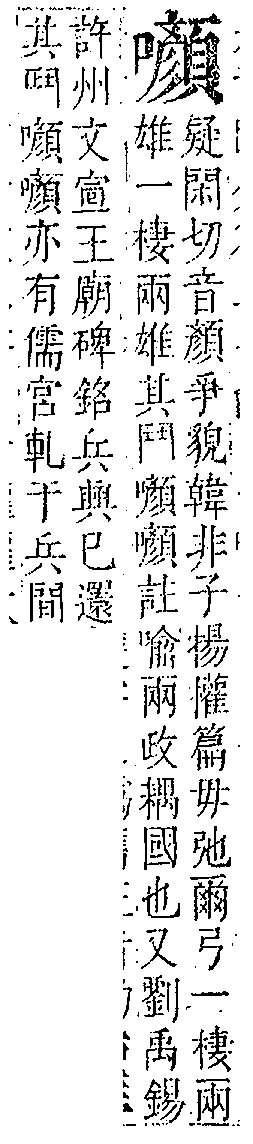 㘖
疑閑切音顏爭貌韓非子楊懽篇毋弛爾弓一棲兩
雄一棲兩雄其鬥㘖㘖註喻兩政耦國也又劉禹錫
許州文宣王廟碑銘兵興已還
其鬥㘖㘖亦有儒宮軋于兵間